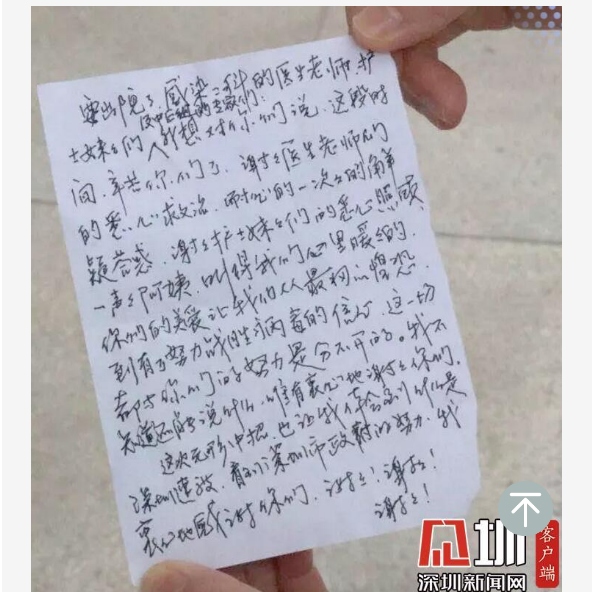 要出院了,感染二科的医生老师、护
士妹妹们,医护后勤的亲们:我想对你们说,这段时
间,辛苦你们了,谢谢医生老师们
的悉心救治,耐心的一次次的解释
疑答惑,谢谢护士妹妹们的悉心照顾
一声声阿姨,叫得我们心里暖暖的.
你们的关爱让我们从最初的惶恐
到有了努力战胜病毒的信心,这一切
都与你们的努力是分不开的。我不
知道还能说什么,唯有衷心地谢谢你们.
这次无形中招,也让我体会到什么是
深圳速度,看到深圳市政府的努力,我
衷心地感谢你们,谢谢!谢谢!
谢谢!
深圳新闻网
客户端